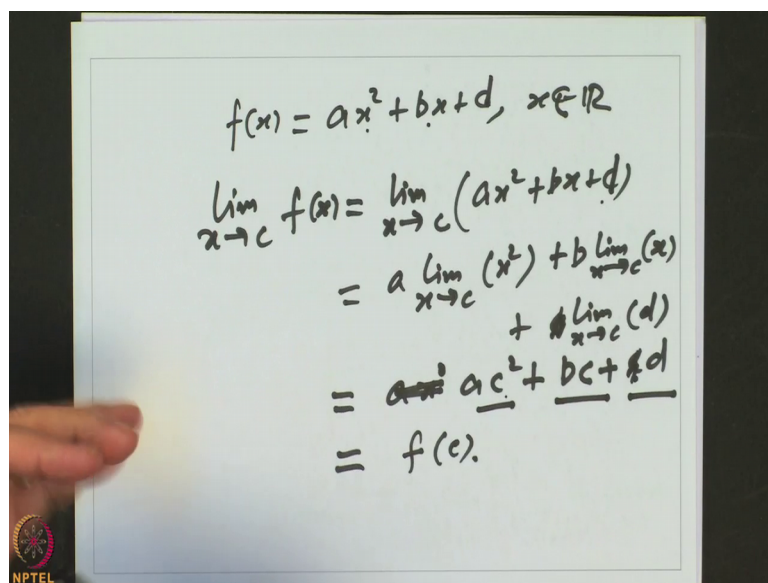 f(x) = ax² + bx + d, x∈ℝ
lim x→c f(x) = lim x→c (ax² + bx + d)
= a lim x→c (x²) + b lim x→c (x)
+ lim x→c (d)
= ac² + bc + d
= f(c).
NPTEL